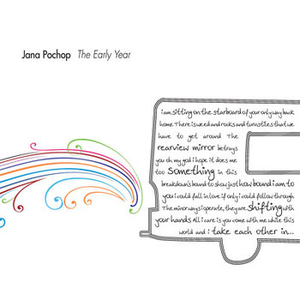 Jana Pochop The Early Year
i am sitting on the starboard of your only way back
home. There is weed and rocks and turnstiles that we
have to get around The
rearview mirror betrays
you oh my god i hope it does me
too Something in this
breakdown is bound to show just how bound i am to
you i could fall in love if only i could follow through
The minor ways i operate, they are shifting with
your hands All i care is you come with me while this
world and i take each other in...